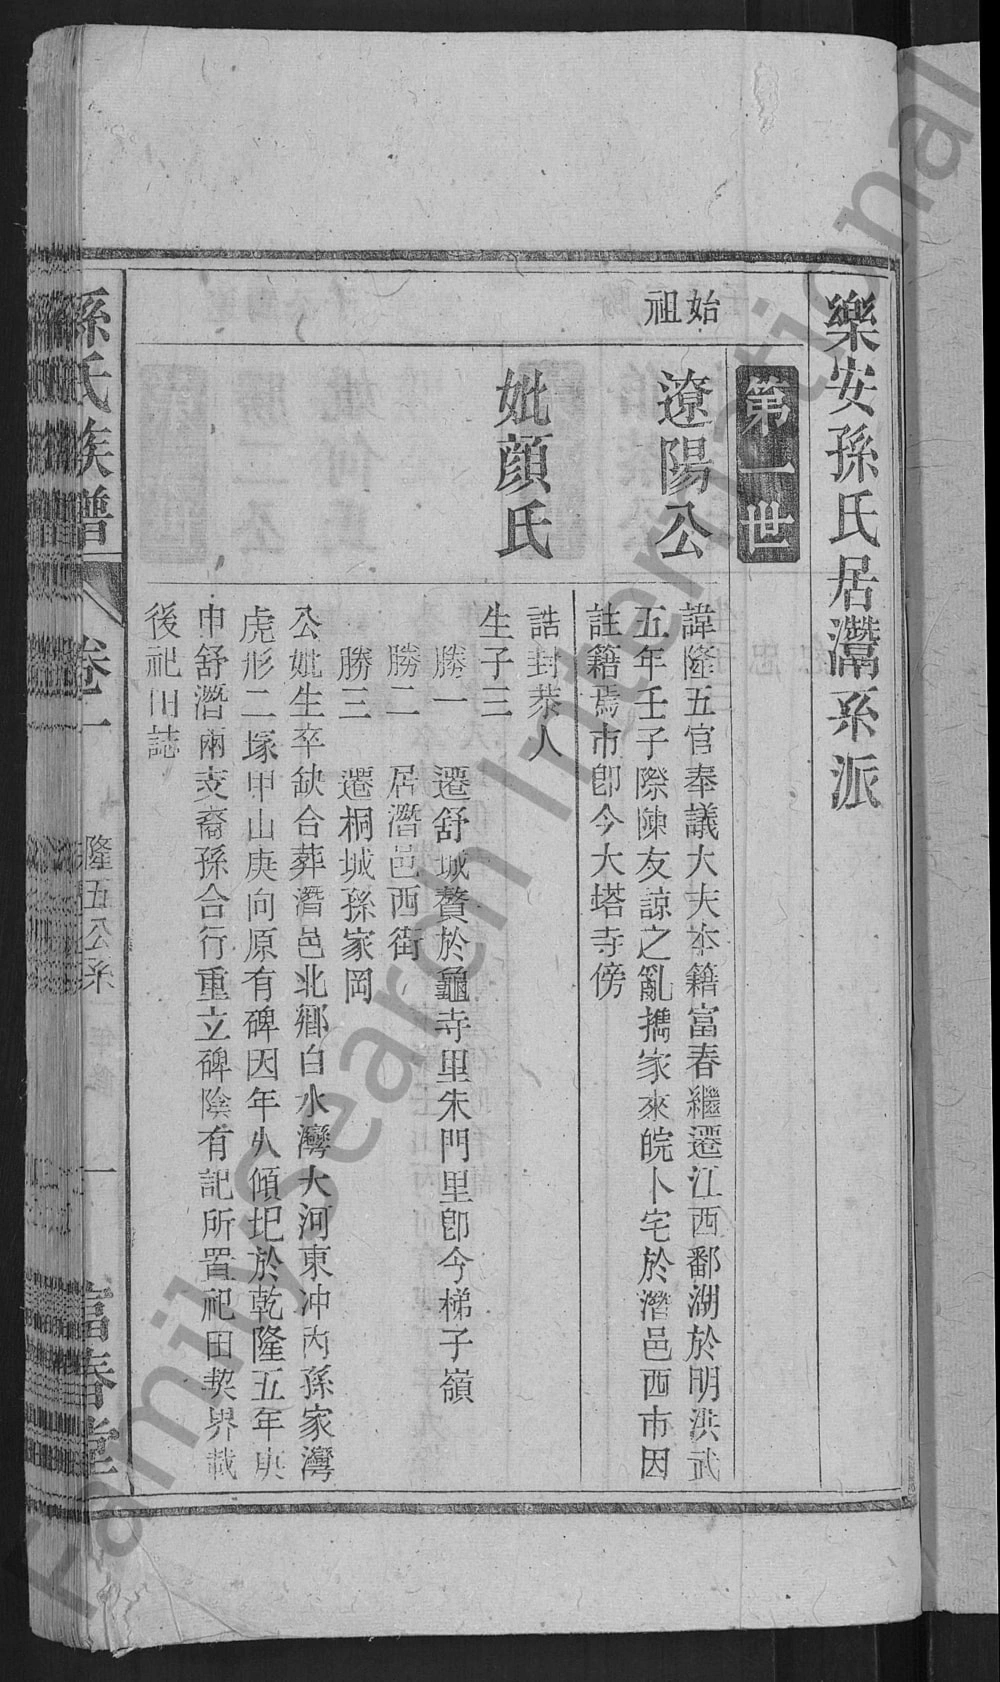 樂安孫氏居灊系派
始祖
第一世
遼陽公
諱隆五官奉議大夫本籍富春繼遷江西鄱湖於明洪武
五年壬子際陳友諒之亂攜家來皖卜宅於潛邑西市因
註籍焉市卽今大塔寺傍
妣顔氏
誥封恭人
生子三
勝一 遷舒城贅於龜寺里朱門里卽今梯子嶺
勝二 居潛邑西街
勝三 遷桐城孫家岡
公妣生卒缺合葬潛邑北鄉白水灣大河東冲內孫家灣
虎形二塚甲山庚向原有碑因年久傾圮於乾隆五年庚
申舒潛兩支裔孫合行重立碑陰有記所置祀田契界載
後祀田誌
孫氏族譜
卷一
隆五公系
一
富春堂
FamilySearch International